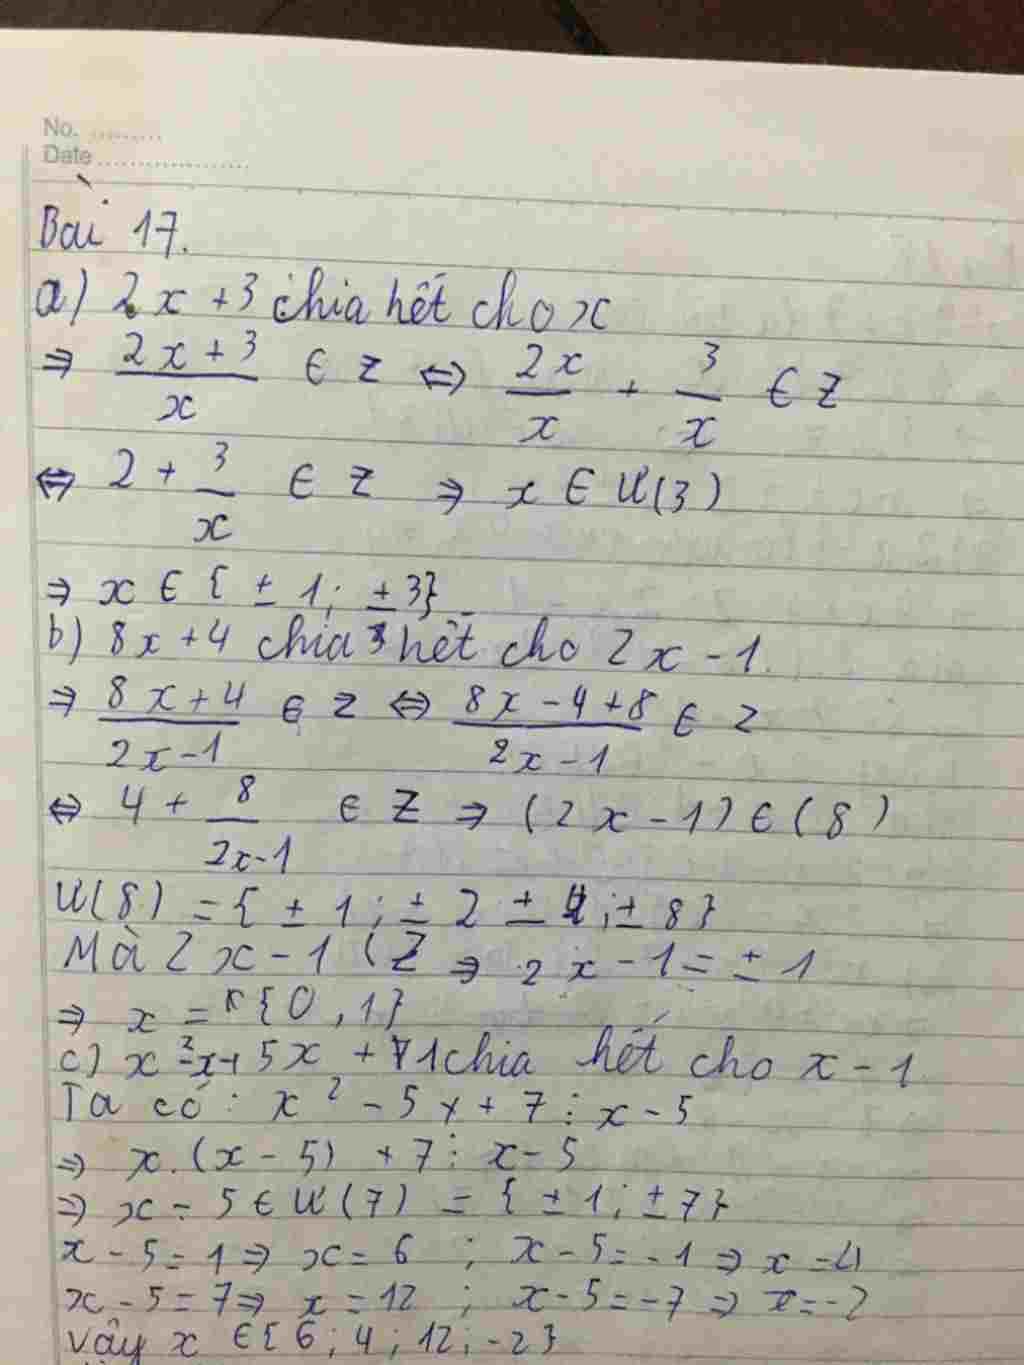 No. .........
Date ....................
Bài 17.
a) 2x + 3 chia hết cho x
⇒ (2x + 3)/x ∈ Z ⇔ 2x/x + 3/x ∈ Z
⇔ 2 + 3/x ∈ Z ⇒ x ∈ Ư(3)
⇒ x ∈ { ± 1; ± 3}
b) 8x + 4 chia hết cho 2x - 1.
⇒ (8x + 4)/(2x - 1) ∈ Z ⇔ (8x - 4 + 8)/(2x - 1) ∈ Z
⇔ 4 + 8/(2x - 1) ∈ Z ⇒ (2x - 1) ∈ (8)
Ư(8) = { ± 1; ± 2 ± 4; ± 8}
Mà 2x - 1 ( Z ⇒ 2x - 1 = ± 1
⇒ x = {0, 1}
c) x² 5x + 1 chia hết cho x - 1
Ta có: x² - 5x + 7 ⋮ x - 5
⇒ x.(x - 5) + 7 ⋮ x - 5
⇒ x - 5 ∈ Ư(7) = { ± 1; ± 7}
x - 5 = 1 ⇒ x = 6 ; x - 5 = -1 ⇒ x = 4
x - 5 = 7 ⇒ x = 12 ; x - 5 = -7 ⇒ x = -2
Vậy x ∈ {6; 4; 12; -2}